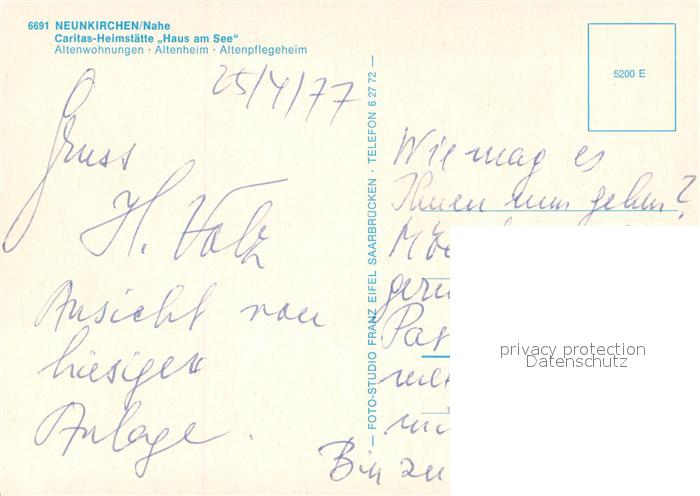 6691 NEUNKIRCHEN/Nahe
Caritas-Heimstätte „Haus am See“
Altenwohnungen · Altenheim · Altenpflegeheim
25/4/77
Gruss
H. Volz
Ansicht von
hiesiger
Anlage.
— FOTO-STUDIO FRANZ EIFEL SAARBRÜCKEN · TELEFON 6 27 72 —
5200 E
Wie mag es
Ihnen nun gehen?
Bin zu
privacy protection
Datenschutz